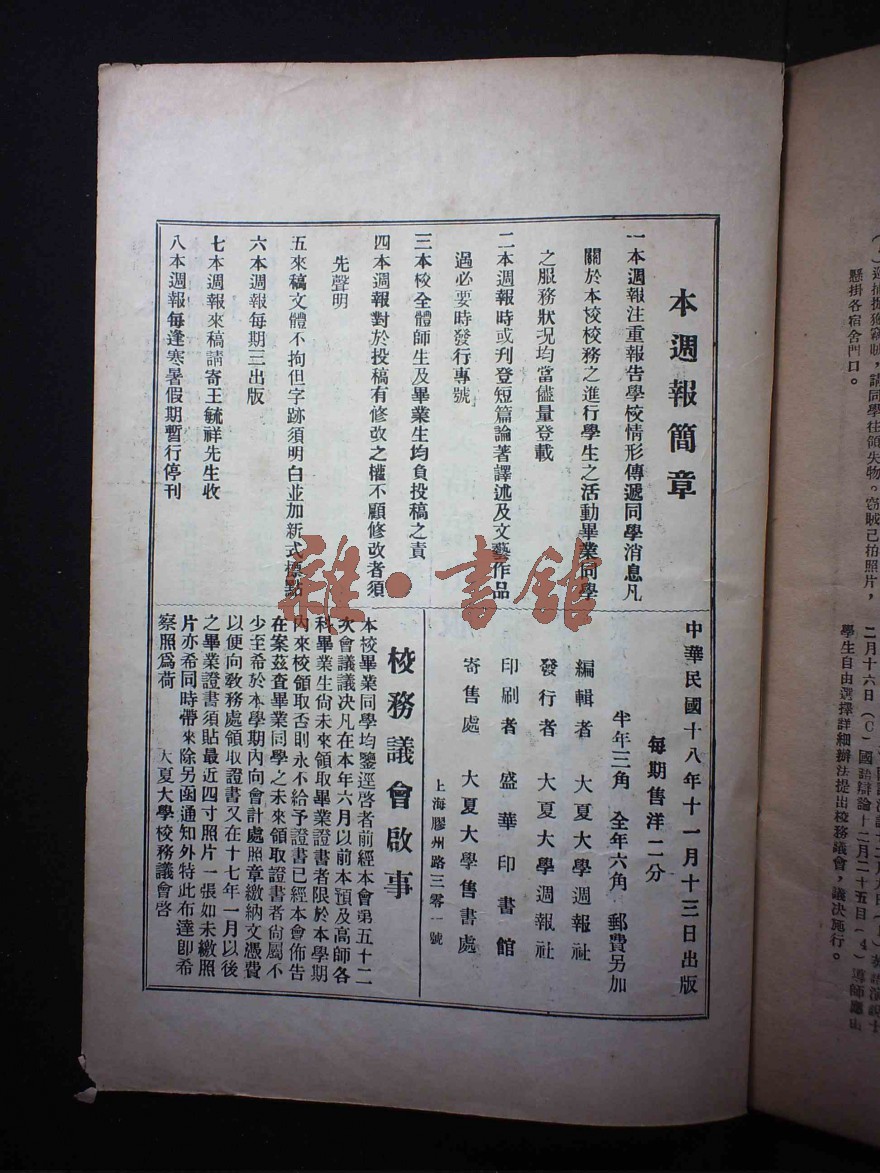 本週報簡章
一本週報注重報告學校情形傳遞同學消息凡
關於本校校務之進行學生之活動畢業同學
之服務狀況均當儘量登載
二本週報時或刊登短篇論著譯述及文藝作品
過必要時發行專號
三本校全體師生及畢業生均負投稿之責
四本週報對於投稿有修改之權不願修改者須
先聲明
五來稿文體不拘但字跡須明白並加新式標點
六本週報每期三出版
七本週報來稿請寄王毓祥先生收
八本週報每逢寒暑假期暫行停刊
中華民國十八年十一月十三日出版
每期售洋二分
半年三角 全年六角 郵費另加
編輯者 大夏大學週報社
發行者 大夏大學週報社
印刷者 盛華印書館
寄售處 大夏大學售書處
上海膠州路三零一號
校務議會啟事
本校畢業同學均鑒逕啓者前經本會第五十二
次會議議决凡在本年六月以前本預及高師各
科畢業生尙未來領取畢業證書者限於本學期
內來校領取否則永不給予證書已經本會佈告
在案茲查畢業同學之未來領取證書者尙屬不
少至希於本學期內向會計處照章繳納文憑費
以便向敎務處領取證書又在十七年一月以後
之畢業證書須貼最近四寸照片一張如未繳照
片亦希同時帶來除另函通知外特此布達卽希
察照爲荷 大夏大學校務議會啓
雜·書館
請同學往領失物。竊賊已拍照片，
懸掛各宿舍門口。
二月十六日（C）國語辯論十二月二十五日（4）導師應由
學生自由選擇詳細辦法提出校務議會，議决施行。